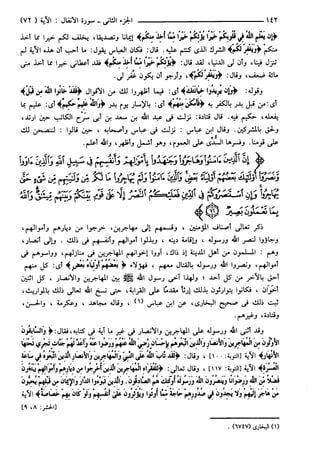 ١٤٢ الجزء الثاني - سورة الأنفال : الآية (٧٢)
﴿إِن يَعْلَمِ ٱللَّهُ فِى قُلُوبِكُمْ خَيْرًا يُؤْتِكُمْ خَيْرًا مِّمَّآ أُخِذَ مِنكُمْ﴾ إيماناً وتصديقاً، يخلف لكم خيراً مما أخذ
منكم ﴿وَيَغْفِرْ لَكُمْ﴾ الشرك الذي كنتم عليه. قال: فكان العباس يقول: ما أحب أن هذه الآية لم
تنزل فينا، وأن لي الدنيا، لقد قال: ﴿يُؤْتِكُمْ خَيْرًا مِّمَّآ أُخِذَ مِنكُمْ﴾ فقد أعطاني خيراً مما أخذ مني
مائة ضعف، وقال: ﴿وَيَغْفِرْ لَكُمْ﴾ وأرجو أن يكون غُفر لي.
وقوله: ﴿وَإِن يُرِيدُوا۟ خِيَانَتَكَ﴾ أي: فيما أظهروا لك من الأقوال ﴿فَقَدْ خَانُوا۟ ٱللَّهَ مِن قَبْلُ﴾
أي: من قبل بدر بالكفر به ﴿فَأَمْكَنَ مِنْهُمْ﴾ أي: بالإسار يوم بدر ﴿وَٱللَّهُ عَلِيمٌ حَكِيمٌ﴾ أي: عليم بما
يفعله، حكيم فيه. قال قتادة: نزلت في عبد الله بن سعد بن أبي سرح الكاتب حين ارتد،
ولحق بالمشركين. وقال ابن عباس: نزلت في عباس وأصحابه، حين قالوا: لننصحن لك
على قومنا. وفسرها السدّي على العموم، وهو أشمل وأظهر، والله أعلم.
﴿إِنَّ ٱلَّذِينَ ءَامَنُوا۟ وَهَاجَرُوا۟ وَجَٰهَدُوا۟ بِأَمْوَٰلِهِمْ وَأَنفُسِهِمْ فِى سَبِيلِ ٱللَّهِ وَٱلَّذِينَ ءَاوَوا۟
وَّنَصَرُوٓا۟ أُو۟لَٰٓئِكَ بَعْضُهُمْ أَوْلِيَآءُ بَعْضٍ وَٱلَّذِينَ ءَامَنُوا۟ وَلَمْ يُهَاجِرُوا۟ مَا لَكُم مِّن وَلَٰيَتِهِم مِّن شَىْءٍ حَتَّىٰ
يُهَاجِرُوا۟ وَإِنِ ٱسْتَنصَرُوكُمْ فِى ٱلدِّينِ فَعَلَيْكُمُ ٱلنَّصْرُ إِلَّا عَلَىٰ قَوْمٍۭ بَيْنَكُمْ وَبَيْنَهُم مِّيثَٰقٌ وَٱللَّهُ
بِمَا تَعْمَلُونَ بَصِيرٌ ﴿٧٢﴾
ذكر تعالى أصناف المؤمنين، وقسمهم إلى مهاجرين، خرجوا من ديارهم وأموالهم،
وجاؤوا لنصر الله ورسوله، وإقامة دينه، وبذلوا أموالهم وأنفسهم في ذلك. وإلى أنصار،
وهم: المسلمون من أهل المدينة إذ ذاك، آووا إخوانهم المهاجرين في منازلهم، وواسوهم في
أموالهم، ونصروا الله ورسوله بالقتال معهم، فهؤلاء ﴿بَعْضُهُمْ أَوْلِيَآءُ بَعْضٍ﴾ أي: كل منهم
أحق بالآخر من كل أحد؛ ولهذا آخى رسول الله ﷺ بين المهاجرين والأنصار، كل اثنين
أخوان، فكانوا يتوارثون بذلك إرثاً مقدماً على القرابة، حتى نسخ الله تعالى ذلك بالمواريث،
ثبت ذلك في صحيح البخاري، عن ابن عباس (١)، وقاله مجاهد، وعكرمة، والحسن،
وقتادة، وغيرهم.
وقد أثنى الله ورسوله على المهاجرين والأنصار في غير ما آية في كتابه، فقال: ﴿وَٱلسَّٰبِقُونَ
ٱلْأَوَّلُونَ مِنَ ٱلْمُهَٰجِرِينَ وَٱلْأَنصَارِ وَٱلَّذِينَ ٱتَّبَعُوهُم بِإِحْسَٰنٍ رَّضِىَ ٱللَّهُ عَنْهُمْ وَرَضُوا۟ عَنْهُ وَأَعَدَّ لَهُمْ جَنَّٰتٍ تَجْرِى تَحْتَهَا
ٱلْأَنْهَٰرُ﴾ الآية [التوبة: ١٠٠]، وقال: ﴿لَّقَد تَّابَ ٱللَّهُ عَلَى ٱلنَّبِىِّ وَٱلْمُهَٰجِرِينَ وَٱلْأَنصَارِ ٱلَّذِينَ ٱتَّبَعُوهُ فِى سَاعَةِ
ٱلْعُسْرَةِ﴾ الآية [التوبة: ١١٧]، وقال تعالى: ﴿لِلْفُقَرَآءِ ٱلْمُهَٰجِرِينَ ٱلَّذِينَ أُخْرِجُوا۟ مِن دِيَٰرِهِمْ وَأَمْوَٰلِهِمْ يَبْتَغُونَ
فَضْلًا مِّنَ ٱللَّهِ وَرِضْوَٰنًا وَيَنصُرُونَ ٱللَّهَ وَرَسُولَهُۥٓ أُو۟لَٰٓئِكَ هُمُ ٱلصَّٰدِقُونَ. وَٱلَّذِينَ تَبَوَّءُو ٱلدَّارَ وَٱلْإِيمَٰنَ مِن قَبْلِهِمْ يُحِبُّونَ
مَنْ هَاجَرَ إِلَيْهِمْ وَلَا يَجِدُونَ فِى صُدُورِهِمْ حَاجَةً مِّمَّآ أُوتُوا۟ وَيُؤْثِرُونَ عَلَىٰٓ أَنفُسِهِمْ وَلَوْ كَانَ بِهِمْ خَصَاصَةٌ﴾ الآية
[الحشر: ٨، ٩]
(١) البخاري (٦٧٤٧).